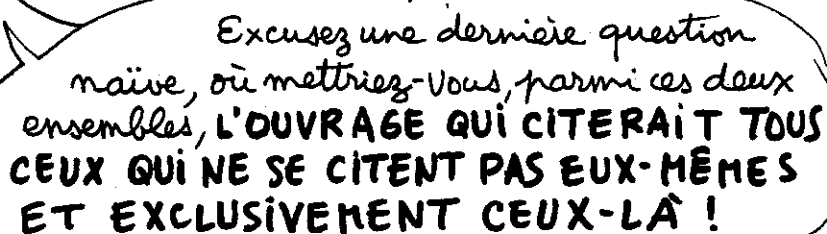 Excusez une dernière question
naïve, où mettriez-vous, parmi ces deux
ensembles, L'OUVRAGE QUi CiTERAiT TOUS
CEUX QUi NE SE CiTENT PAS EUX-MÊMES
ET EXCLUSiVEMENT CEUX-LÀ !